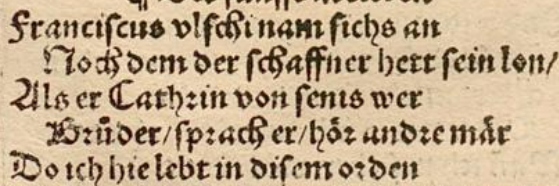 Franciscus vlschi nam sichs an
Noch dem der schaffner hett sein lon/
Als er Cathrin von senis wer
Brůder/sprach er/hör andre mär
Do ich hie lebt in disem orden